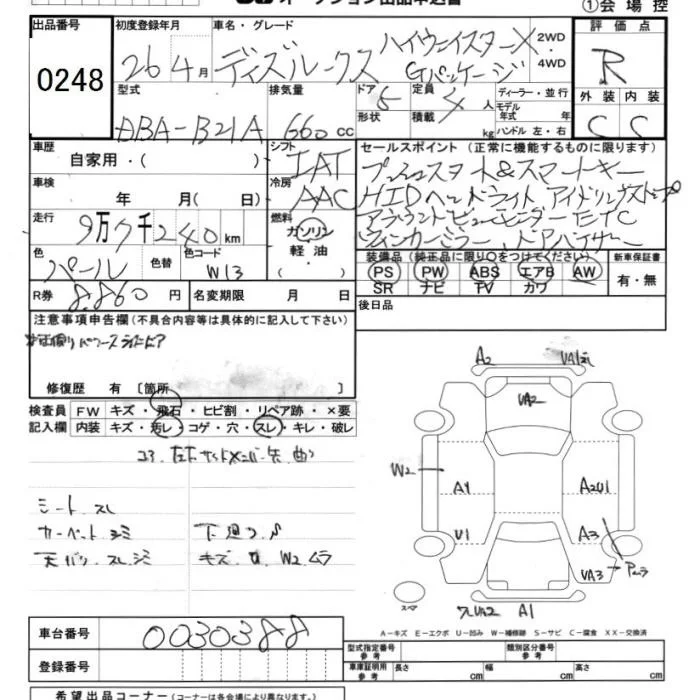 ①会場控
出品番号 初度登録年月 車名・グレード 評価点
0248
26年4月 ディズルークス ハイウェイスターX
Gパッケージ
2WD
4WD
R
型式 排気量 ドア 定員 ディーラー・並行 外装 内装
DBA-B21A 660cc 5 4人
形状 積載 kg
モデル年式 年
ハンドル 左・右
C C
車歴 シフト セールスポイント(正常に機能するものに限ります)
自家用・( ) IAT プッシュスタート&スマートキー
車検 冷房 HIDヘッドライト アイドリングストップ
年 月( 日) AAC アラウンドビューモニター ETC
走行 燃料 ウィンカーミラー ドアバイザー
9万7千240km ガソリン
軽油
・( )
色 色替 色コード
パール W13
装備品(純正品に限り○をつけてください) 新車保証書
PS PW ABS エアB AW 有・無
SR ナビ TV カワ
R券 8,860円 名変期限 月 日 後日品
注意事項申告欄(不具合内容等は具体的に記入して下さい)
修復歴 有 〔箇所 〕
検査員 FW キズ・飛石・ヒビ割・リペア跡・×要
記入欄 内装 キズ・汚レ・コゲ・穴・スレ・キレ・破レ
シート スレ
カーペット シミ
キズ W2 ムラ
A2
VA2
W2
A1
A2U1
U1
A3
VA3
スペア
A1
A-キズ E-エクボ U-凹み W-補修跡 S-サビ C-腐食 XX-交換済
車台番号 0030388
登録番号
型式指定番号 参考 類別区分番号 参考
車庫証明用 参考 長さ cm 幅 cm 高さ cm
希望出品コーナー(コーナーは各会場により異なります。)